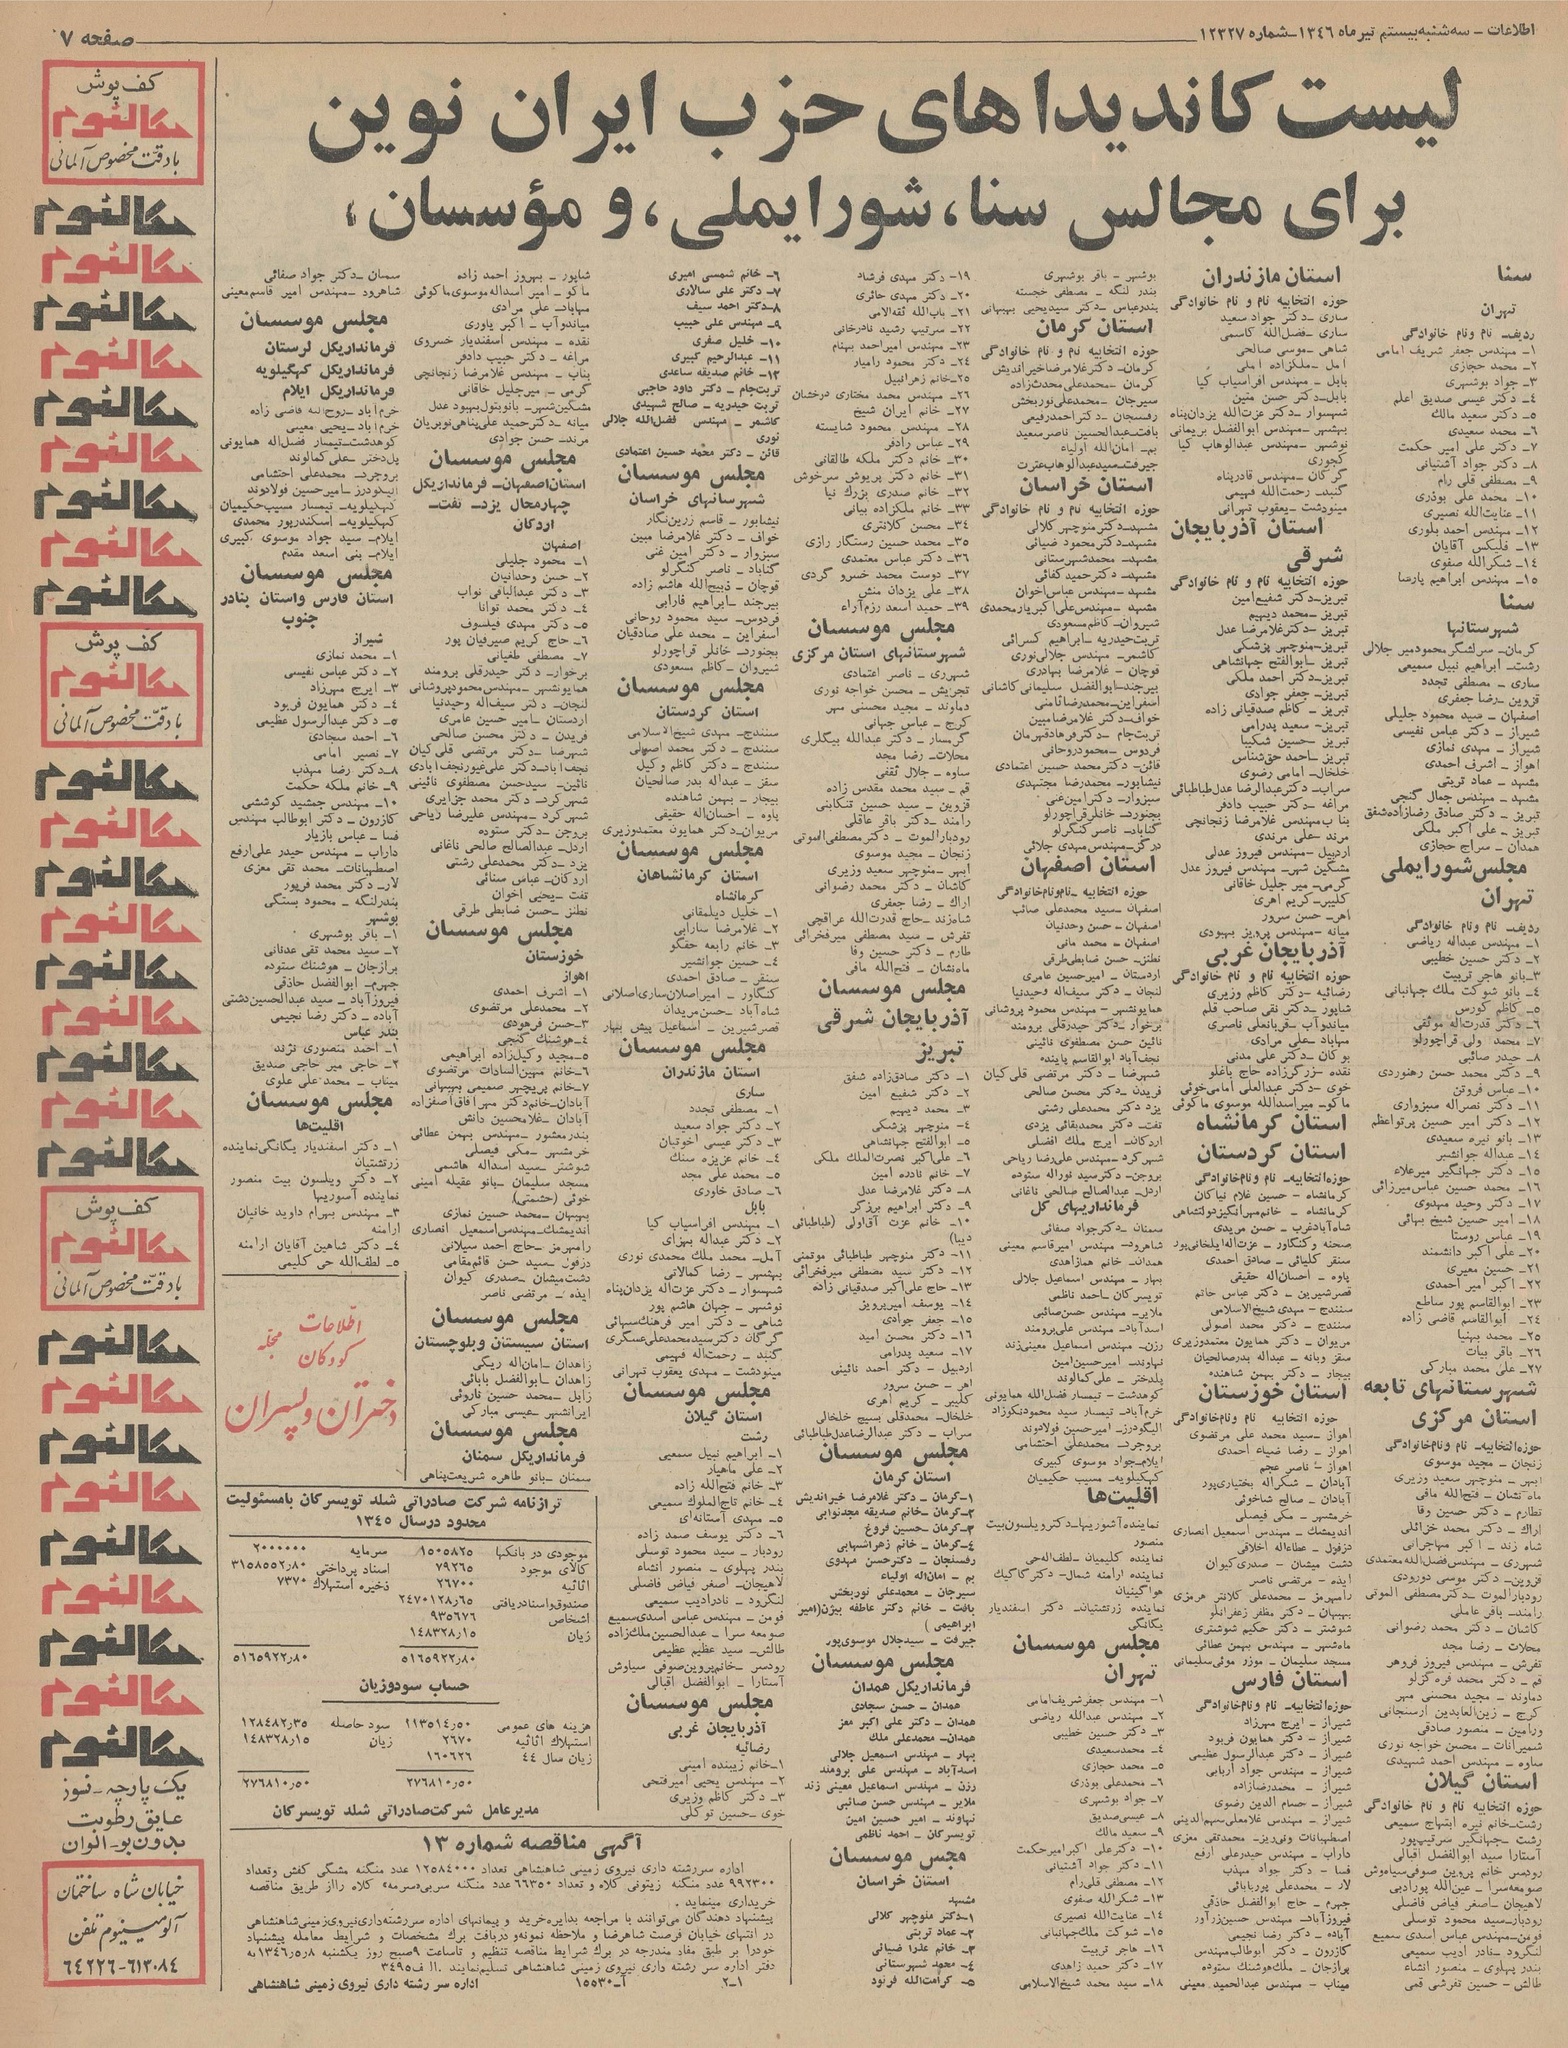 اطلاعات - سه‌شنبه بیستم تیر ماه ۱۳۴۶ - شماره ۱۲۳۲۷
صفحه ۷
لیست کاندیداهای حزب ایران نوین
برای مجالس سنا، شورایملی، و مؤسسان،
سنا
تهران
ردیف- نام ونام خانوادگی
۱- مهندس جعفر شریف امامی
۲- محمد حجازی
۳- جواد بوشهری
۴- دکتر عیسی صدیق اعلم
۵- دکتر سعید مالک
۶- محمد سعیدی
۷- دکتر علی امیر حکمت
۸- دکتر جواد آشتیانی
۹- مصطفی قلی رام
۱۰- محمد علی بوذری
۱۱- عنایت‌الله نصیری
۱۲- مهندس احمد بلوری
۱۳- فلیکس آقایان
۱۴- شکرالله صفوی
۱۵- مهندس ابراهیم پارسا
سنا
شهرستانها
کرمان- سرلشگر محمود میر جلالی
رشت- ابراهیم نبیل سمیعی
ساری - مصطفی تجدد
قزوین- رضا جعفری
اصفهان - سید محمود جلیلی
شیراز - دکتر عباس نفیسی
شیراز - مهدی نمازی
اهواز - اشرف احمدی
مشهد- عماد تربتی
مشهد - مهندس جمال گنجی
تبریز - دکتر صادق رضازاده‌شفق
تبریز - علی اکبر ملکی
همدان - سراج حجازی
مجلس شورایملی
تهران
ردیف- نام ونام خانوادگی
۱- مهندس عبداله ریاضی
۲- دکتر حسین خطیبی
۳- بانو هاجر تربیت
۴- بانو شوکت ملک جهانبانی
۵- کاظم کورس
۶- دکتر قدرت‌اله موثقی
۷- محمد ولی قراچورلو
۸- حیدر صائبی
۹- دکتر محمد حسن رهنوردی
۱۰- عباس فروتن
۱۱- دکتر نصراله سبزواری
۱۲- دکتر امیر حسین پرتواعظم
۱۳- بانو نیره سعیدی
۱۴- عبداله جوانشیر
۱۵- دکتر جهانگیر میرعلاء
۱۶- محمد حسین عباس‌میرزائی
۱۷- دکتر وحید مهدوی
۱۸- امیر حسین شیخ بهائی
۱۹- عباس روستا
۲۰- علی اکبر دانشمند
۲۱- حسین معیری
۲۲- اکبر امیر احمدی
۲۳- ابوالقاسم پور ساطع
۲۴- ابوالقاسم قاضی زاده
۲۵- محمد بهنیا
۲۶- باقر بیات
۲۷- علی محمد مبارکی
شهرستانهای تابعه
استان مرکزی
حوزه‌انتخابیه- نام ونام‌خانوادگی
زنجان - مجید موسوی
ابهر- منوچهر سعید وزیری
ماه نشان - فتح‌الله مافی
تطارم - دکتر حسین وفا
اراک - دکتر محمد خزائلی
شاه زند - اکبر مهاجرانی
شهرری - مهندس‌فضل‌الله‌معتمدی
قزوین- دکتر موسی دورودی
رودبارالموت - دکترمصطفی الموتی
رامند- باقر عاملی
کاشان - دکتر محمد رضوانی
محلات - رضا مجد
تفرش - مهندس فیروز فروهر
قم - دکتر محمد قره‌گزلو
دماوند - مجید محسنی مهر
کرج - زین‌العابدین ارسنجانی
ورامین - منصور صادقی
شمیرانات - محسن خواجه نوری
ساوه - مهندس احمد شهیدی
استان گیلان
حوزه انتخابیه نام و نام خانوادگی
رشت-خانم نیره ابتهاج سمیعی
رشت -جهانگیر سرتیپ‌پور
آستارا سید ابوالفضل اقبالی
رودسر خانم پروین صوفی‌سیاموش
صومعه‌سرا - عین‌الله پورادیبی
لاهیجان- اصغر فیاض فاضلی
رودبار-سید محمود توسلی
فومن-مهندس عباس اسدی سمیع
لنگرود - نادر ادیب سمیعی
بندر پهلوی - منصور انشاء
طالش - حسین تفرشی قمی
استان مازندران
حوزه انتخابیه نام و نام خانوادگی
ساری -دکتر جواد سعید
ساری -فضل‌الله کاسمی
شاهی -موسی صالحی
آمل -ملکزاده املی
بابل - مهندس افراسیاب کیا
بابل-دکتر حسن متین
شهسوار -دکتر عزت‌الله یزدان‌پناه
بهشهر- مهندس ابوالفضل بریمانی
نوشهر -مهندس عبدالوهاب کیا
کجوری
گرگان -مهندس قادرپناه
گنبد- رحمت‌الله فهیمی
مینودشت -یعقوب تهرانی
استان آذربایجان
شرقی
حوزه انتخابیه نام و نام خانوادگی
تبریز-دکتر شفیع‌امین
تبریز- محمد دیهیم
تبریز -دکترغلامرضا عدل
تبریز-منوچهر پزشکی
تبریز-ابوالفتح جهانشاهی
تبریز - دکتر احمد ملکی
تبریز - جعفر جوادی
تبریز - کاظم صدقیانی زاده
تبریز- سعید پدرامی
تبریز -حسین شکیبا
تبریز - احمد حق‌شناس
خلخال- امامی رضوی
سراب-دکتر عبدالرضا عدل‌طباطبائی
مراغه -دکتر حبیب دادفر
بناب مهندس غلامرضا زنجانچی
مرند -علی مرندی
اردبیل -مهندس فیروز عدلی
مشگین شهر- مهندس فیروز عدل
گرمی-میر جلیل خاقانی
کلیبر -کریم اهری
اهر- حسن سرور
میانه -مهندس پرویز بهبودی
آذربایجان غربی
حوزه انتخابیه نام و نام خانوادگی
رضائیه -دکتر کاظم وزیری
شاپور -دکتر نقی صاحب قلم
میاندوآب -قربانعلی ناصری
مهاباد -علی مرادی
بوکان - دکتر علی مدنی
نقده -زرگرزاده حاج باغلو
خوی -دکتر عبدالعلی امامی‌خوئی
ماکو- میراسدالله موسوی ماکوئی
استان کرمانشاه
استان کردستان
حوزه‌انتخابیه- نام و نام‌خانوادگی
کرمانشاه - حسین غلام نیاکان
کرمانشاه - خانم‌مهرانگیزدولتشاهی
شاه‌آبادغرب - حسن مریدی
صحنه وکنگاور -عزت‌اله ایلخانی‌پور
سنقر کلیائی - صادق احمدی
پاوه - احسان‌اله حقیقی
قصرشیرین - دکتر عباس حاتم
سنندج - مهدی شیخ‌الاسلامی
سنندج - دکتر محمد اصولی
مریوان - دکتر همایون معتمدوزیری
سقز وبانه - عبداله بدرصالحیان
بیجار - دکتر بهمن شاهنده
استان خوزستان
حوزه انتخابیه نام ونام‌خانوادگی
اهواز -سید محمد علی مرتضوی
اهواز - رضا ضیاء احمدی
اهواز - ناصر عجم
آبادان - شکراله بختیاری‌پور
آبادان - صالح شاخوئی
خرمشهر - مکی فیصلی
اندیمشک - مهندس اسمعیل انصاری
دزفول - عطاءاله اخلاقی
دشت میشان - صدری‌کیوان
ایذه - مرتضی ناصر
رامهرمز - محمدعلی کلانتر هرمزی
بهبهان - دکتر مظفر زعفرانلو
شوشتر - دکتر حکیم شوشتری
ماه‌شهر - مهندس بهمن عطائی
مسجد سلیمان- موزر موئی‌سلیمانی
استان فارس
حوزه انتخابیه- نام ونام‌خانوادگی
شیراز - ایرج مهرزاد
شیراز - دکتر همایون فربود
شیراز - دکتر عبدالرسول عظیمی
شیراز - مهندس جواد اربابی
شیراز - محمدرضازاده
شیراز - حسام الدین رضوی
شیراز - مهندس غلامعلی سهم‌الدینی
اصطهبانات ونی‌ریز- محمدتقی معزی
داراب - مهندس حیدرعلی ارفع
فسا - دکتر جواد مهذب
لار- محمدعلی پوربابائی
جهرم - حاج ابوالفضل حاذقی
فیروزآباد- مهندس حسین‌زرآور
آباده - دکتر رضا نجیمی
کازرون - دکتر ابوطالب‌مهندس
برازجان - ملک‌هوشنگ ستوده
میناب - مهندس عبدالحمید معینی
بوشهر- باقر بوشهری
بندر لنگه - مصطفی خجسته
بندرعباس -دکتر سیدیحیی بهبهانی
استان کرمان
حوزه انتخابیه نام و نام خانوادگی
کرمان- دکتر غلامرضاخیراندیش
کرمان - محمدعلی‌محدث‌زاده
سیرجان - محمدعلی‌نوربخش
رفسنجان -دکتراحمدرفیعی
بافت-عبدالحسین ناصرسعید
بم- امان‌الله اولیاء
جیرفت-سیدعبدالوهاب‌عترت
استان خراسان
حوزه انتخابیه نام و نام خانوادگی
مشهد-دکترمنوچهر کلالی
مشهد-دکترمحمود ضیائی
مشهد- محمدشهرستانی
مشهد - دکتر حمید کفائی
مشهد-مهندس عباس‌اخوان
مشهد -مهندس‌علی‌اکبریارمحمدی
شیروان- کاظم‌مسعودی
تربت‌حیدریه - ابراهیم کسرائی
کاشمر- مهندس جلالی‌نوری
قوچان - غلامرضا بهادری
بیرجند-ابوالفضل سلیمانی کاشانی
اسفراین- محمدرضا ثامنی
خواف- دکتر غلامرضا مبین
تربت‌جام -دکترفرهادقهرمان
فردوس - محمودروحانی
قائن -دکتر محمد حسین اعتمادی
نیشابور- محمدرضا مجتهدی
سبزوار - دکترامین‌غنی
بجنورد- خانلرقراچورلو
گناباد- ناصر کنگرلو
درگز-مهندس‌مهدی جلائی
استان اصفهان
حوزه انتخابیه -نام‌ونام‌خانوادگی
اصفهان - سید محمدعلی صائب
اصفهان - حسن وحدنیان
اصفهان - محمد مانی
نطنز- حسن ضابطی‌طرقی
اردستان - امیرحسین عامری
لنجان - دکتر سیف‌اله وحیدنیا
همایونشهر - مهندس محمود پروشانی
برخوار - دکتر حیدرقلی برومند
نائین حسن مصطفوی نائینی
نجف‌آباد ابوالقاسم پاینده
شهرضا - دکتر مرتضی قلی‌کیان
فریدن - دکتر محسن صالحی
یزد دکتر محمدعلی رشتی
تفت - دکتر محمدبقائی یزدی
اردکان- ایرج ملک افضلی
شهر کرد -مهندس علی‌رضا ریاحی
بروجن- دکتر سید نوراله ستوده
اردل- عبدالصالح صالحی ناغانی
فرمانداریهای کل
سمنان - دکتر جواد صفائی
شاهرود- مهندس امیرقاسم معینی
همدان- خانم هما زاهدی
بهار - مهندس اسماعیل جلالی
تویسرکان - احمد ناظمی
ملایر- مهندس حسن‌صائبی
اسدآباد- مهندس علی‌برومند
رزن - مهندس اسماعیل معینی‌زند
نهاوند- امیرحسین‌امین
پلدختر - علی‌کمالوند
کوهدشت - تیمسار فضل‌الله همایونی
خرم‌آباد- تیمسار سید محمودنکوزاد
الیگودرز - امیرحسین فولادوند
بروجرد- محمدعلی احتشامی
ایلام-جواد موسوی کبیری
کهکیلویه- مسیب حکیمیان
اقلیت‌ها
نماینده آشوریها-دکترویلسون‌بیت
منصور
نماینده کلیمیان - لطف‌اله‌حی
نماینده ارامنه شمال-دکتر گاگیک
هوا گینیان
نماینده زرتشتیان- دکتر اسفندیار
یگانگی
مجلس موسسان
تهران
۱- مهندس جعفر شریف‌امامی
۲- مهندس عبدالله ریاضی
۳- دکتر حسین خطیبی
۴- محمدسعیدی
۵- محمد حجازی
۶- محمدعلی بوذری
۷- جواد بوشهری
۸- عیسی‌صدیق
۹- سعید مالک
۱۰- دکتر علی‌اکبرامیرحکمت
۱۱- دکتر جواد آشتیانی
۱۲- مصطفی قلی‌رام
۱۳- شکرالله صفوی
۱۴- عنایت‌الله نصیری
۱۵- شوکت ملک‌جهانبانی
۱۶- هاجر تربیت
۱۷- دکتر حمید زاهدی
۱۸- سید محمد شیخ‌الاسلامی
۱۹- دکتر مهدی فرشاد
۲۰- دکتر مهدی حائری
۲۱- باب‌الله ثقه‌الامی
۲۲- سرتیپ رشید نادرخانی
۲۳- مهندس امیراحمد بهنام
۲۴- دکتر محمود رامیار
۲۵- خانم زهرانبیل
۲۶- مهندس محمد مختاری درخشان
۲۷- خانم ایران شیخ
۲۸- مهندس محمود شایسته
۲۹- عباس رادفر
۳۰- خانم دکتر ملکه طالقانی
۳۱- خانم دکتر پریوش سرخوش
۳۲- خانم صدری بزرگ نیا
۳۳- خانم ملکزاده بیانی
۳۴- محسن کلانتری
۳۵- محمد حسین رستگار رازی
۳۶- دکتر عباس معتمدی
۳۷- دوست محمد خسرو گردی
۳۸- علی یزدان منش
۳۹- حمید اسعد رزم‌آراء
مجلس موسسان
شهرستانهای استان مرکزی
شهرری - ناصر اعتمادی
تجریش - محسن خواجه نوری
دماوند - مجید محسنی مهر
کرج - عباس جهانی
گرمسار - دکتر عبدالله بیگلری
محلات- رضا مجد
ساوه - جلال ثقفی
قم - سید محمد مقدس زاده
قزوین - سید حسین تنکابنی
رامند - دکتر باقر عاقلی
رودبارالموت -دکتر مصطفی‌الموتی
زنجان - مجید موسوی
ابهر -منوچهر سعید وزیری
کاشان - دکتر محمد رضوانی
اراک - رضا جعفری
شاه‌زند - حاج قدرت‌الله عراقچی
تفرش - سید مصطفی میرفخرائی
طارم - دکتر حسین وفا
ماه‌نشان - فتح‌الله مافی
مجلس موسسان
آذربایجان شرقی
تبریز
۱- دکتر صادق‌زاده شفق
۲- دکتر شفیع امین
۳- محمد دیهیم
۴- منوچهر پزشکی
۵- ابوالفتح جهانشاهی
۶- علی‌اکبر نصرت‌الملک ملکی
۷- خانم نادره امین
۸- دکتر غلامرضا عدل
۹- دکتر ابراهیم برزگر
۱۰- خانم عزت آقاولی (طباطبائی
دیبا)
۱۱- دکتر منوچهر طباطبائی موتمنی
۱۲- دکتر سید مصطفی میرفخرائی
۱۳- حاج علی‌اکبر صدقیانی زاده
۱۴- یوسف امیرپرویز
۱۵- جعفر جوادی
۱۶- محسن امید
۱۷- سعید پدرامی
اردبیل - دکتر احمد نائینی
اهر - حسن سرور
کلیبر - کریم اهری
خلخال- محمدقلی بسیج خلخالی
سراب - دکتر عبدالرضاعدل‌طباطبائی
مجلس موسسان
استان کرمان
۱-کرمان - دکتر غلامرضا خیراندیش
۲-کرمان -خانم صدیقه مجدنوابی
۳-کرمان -حسین فروغ
۴-کرمان - خانم زهراشهابی
رفسنجان - دکترحسن مهدوی
بم - امان‌اله اولیاء
سیرجان - محمدعلی نوربخش
بافت - خانم دکتر عاطفه بیژن(امیر
ابراهیمی)
جیرفت - سیدجلال موسوی‌پور
مجلس موسسان
فرمانداریکل همدان
همدان - حسن سجادی
همدان - دکتر علی اکبر معز
همدان - محمدعلی ملک
بهار - مهندس اسمعیل جلالی
اسدآباد - مهندس علی برومند
رزن - مهندس اسماعیل معینی زند
ملایر - مهندس حسن صائبی
نهاوند - امیر حسین امین
تویسرکان - احمد ناظمی
مجس موسسان
استان خراسان
مشهد
۱-دکتر منوچهر کلالی
۲- عماد تربتی
۳- خانم عذرا ضیائی
۴- محمد شهرستانی
۵- کرامت‌الله فرنود
۶- خانم شمسی امیری
۷- دکتر علی سالاری
۸-دکتر احمد سیف
۹- مهندس علی حبیب
۱۰- خلیل صفری
۱۱- عبدالرحیم کبیری
۱۲- خانم صدیقه ساعدی
تربت‌جام - دکتر داود حاجبی
تربت حیدریه - صالح شهیدی
کاشمر - مهندس فضل‌الله جلالی
نوری
قائن - دکتر محمد حسین اعتمادی
مجلس موسسان
شهرستانهای خراسان
نیشابور - قاسم زرین‌نگار
خواف - دکتر غلامرضا مبین
سبزوار - دکتر امین غنی
گناباد - ناصر کنگرلو
قوچان - ذبیح‌الله هاشم زاده
بیرجند -ابراهیم فارابی
فردوس- سید محمود روحانی
اسفراین - محمد علی صادقیان
بجنورد- خانلر قراچورلو
شیروان - کاظم مسعودی
مجلس موسسان
استان کردستان
سنندج- مهدی شیخ‌الاسلامی
سنندج - دکتر محمد اصولی
سنندج - دکتر کاظم وکیل
سقز - عبداله بدر صالحیان
بیجار - بهمن شاهنده
پاوه - احسان‌اله حقیقی
مریوان-دکتر همایون معتمدوزیری
مجلس موسسان
استان کرمانشاهان
کرمانشاه
۱- خلیل دیلمقانی
۲- غلامرضا سارابی
۳- خانم رابعه حقگو
۴- حسین جوانشیر
سنقر - صادق احمدی
کنگاور - امیراصلان‌ساری‌اصلانی
شاه‌آباد -حسن‌مریدان
قصرشیرین - اسماعیل پیش بهار
مجلس موسسان
استان مازندران
ساری
۱- مصطفی تجدد
۲- دکتر جواد سعید
۳- دکتر عیسی اخوتیان
۴- خانم عزیزه سنگ
۵- محمد علی مجد
۶- صادق خاوری
بابل
۱- مهندس افراسیاب کیا
۲- دکتر عبداله بهزای
آمل- محمد ملک محمدی نوری
بهشهر - رضا کمالاتی
شهسوار - دکتر عزت‌اله یزدان‌پناه
نوشهر - جهان هاشم پور
شاهی - دکتر امیر فرهنگ‌سهپائی
گرگان دکترسیدمحمدعلی‌عسکری
گنبد - رحمت‌اله فهیمی
مینودشت - مهدی یعقوب تهرانی
مجلس موسسان
استان گیلان
رشت
۱- ابراهیم نبیل سمعیی
۲- علی ماهیار
۳- خانم فتح‌الله زاده
۴- خانم تاج‌الملوک سمیعی
۵- مهدی آستانه‌ای
۶- دکتر یوسف صمد زاده
رودبار - سید محمود توسلی
بندر پهلوی - منصور انشاء
لاهیجان- اصغر فیاض فاضلی
لنگرود - نادرادیب سمیعی
فومن - مهندس عباس اسدی‌سمیع
صومعه سرا - عبدالحسین‌ملک‌زاده
طالش - سید عظیم عظیمی
رودسر -خانم‌پروین‌صوفی سیاوش
آستارا - ابوالفضل اقبالی
مجلس موسسان
آذربایجان غربی
رضائیه
۱-خانم زیبنده امینی
۲- مهندس یحیی امیرفتحی
۳- دکتر کاظم وزیری
خوی -حسین توکلی
شاپور - بهروز احمد زاده
ماکو - امیر اسداله‌موسوی‌ماکوئی
مهاباد- علی مرادی
میاندوآب - اکبر یاوری
نقده - مهندس اسفندیار خسروی
مراغه - دکتر حبیب دادفر
بناب - مهندس غلامرضا زنجانچی
گرمی - میرجلیل خاقانی
مشکین‌شهر- بانوبتول‌بهبود عدل
میانه -دکترحمید علی‌پناهی‌نوبریان
مرند- حسن جوادی
مجلس موسسان
استان‌اصفهان- فرمانداریکل
چهارمحال یزد- نفت-
اردکان
اصفهان
۱- محمود جلیلی
۲- حسن وحدانیان
۳- دکتر عبدالباقی نواب
۴- دکتر محمد توانا
۵- دکتر مهدی فیلسوف
۶- حاج کریم صیرفیان پور
۷- مصطفی طغیانی
برخوار- دکتر حیدرقلی برومند
همایونشهر- مهندس‌محمودپروشانی
لنجان- دکتر سیف‌اله وحیدنیا
اردستان - امیر حسین عامری
فریدن - دکتر محسن صالحی
شهرضا - دکتر مرتضی قلی‌کیان
نجف‌آباد-دکتر علی‌غیورنجف‌آبادی
نائین- سیدحسن مصطفوی نائینی
شهرکرد- دکتر محمد جزایری
شهر کرد - مهندس علیرضا ریاحی
بروجن -دکتر ستوده
اردل- عبدالصالح صالحی ناغانی
یزد - دکتر محمدعلی رشتی
اردکان- عباس سنائی
تفت -یحیی اخوان
نطنز -حسن ضابطی طرقی
مجلس موسسان
خوزستان
اهواز
۱- اشرف احمدی
۲- محمدعلی مرتضوی
۳-حسن فرهودی
۴-هوشنگ گنجی
۵-مجید وکیل‌زاده ابراهیمی
۶-خانم مهین‌السادات مرتضوی
۷-خانم پریچهر صمیمی بهبهانی
آبادان-خانم‌دکتر مهر آفاق‌آصفزاده
آبادان -غلامحسین دانش
بندرمعشور -مهندس بهمن عطائی
خرمشهر -مکی فیصلی
شوشتر -سید اسداله هاشمی
مسجد سلیمان -بانو عقیله امینی
خوئی (حشمتی)
بهبهان- محمد حسین نمازی
اندیمشک-مهندس‌اسمعیل انصاری
رامهرمز -حاج احمد سیلانی
دزفول -سید حسن قائم‌مقامی
دشت‌میشان -صدری کیوان
ایذه - مرتضی ناصر
مجلس موسسان
استان سیستان وبلوچستان
زاهدان -امان‌اله ریگی
زاهدان -ابوالفضل بابائی
زابل- محمد حسین ناروئی
ایرانشهر -عیسی مبارکی
مجلس موسسان
فرمانداریکل سمنان
سمنان -بانو طاهره شریعت‌پناهی
سمنان -دکتر جواد صفائی
شاهرود -مهندس امیر قاسم‌معینی
مجلس موسسان
فرمانداریکل لرستان
فرمانداریکل کهگیلویه
فرمانداریکل ایلام
خرم‌آباد -روح‌اله قاضی زاده
خرم‌آباد - یحیی معینی
کوهدشت-تیمسار فضل‌اله همایونی
پل‌دختر -علی کمالوند
بروجرد- محمدعلی احتشامی
الیگودرز -امیرحسین فولادوند
کهکیلویه- تیمسار مسیب‌حکیمیان
کهکیلویه- اسکندرپور محمدی
ایلام- سید جواد موسوی کبیری
ایلام- بنی اسعد مقدم
مجلس موسسان
استان فارس واستان بنادر
جنوب
شیراز
۱- محمد نمازی
۲- دکتر عباس نفیسی
۳- ایرج مهرزاد
۴- دکتر همایون فربود
۵- دکتر عبدالرسول عظیمی
۶- احمد سجادی
۷- نصیر امامی
۸- دکتر رضا مهذب
۹- خانم ملکه حکمت
۱۰- مهندس جمشید کوششی
کازرون - دکتر ابوطالب مهندس
فسا- عباس بازیار
داراب - مهندس حیدر علی‌ارفع
اصطهبانات - محمد تقی معزی
لار- دکتر محمد فرپور
بندرلنگه - محمود بستگی
بوشهر
۱- باقر بوشهری
۲- سید محمد تقی عدنانی
برازجان - هوشنگ ستوده
جهرم- ابوالفضل حاذقی
فیروزآباد - سید عبدالحسین‌دشتی
آباده - دکتر رضا نجیمی
بندر عباس
۱- احمد منصوری نژند
۲- حاجی میر حاجی صدیق
میناب - محمد علی علوی
مجلس موسسان
اقلیت‌ها
۱- دکتر اسفندیار یگانگی‌نماینده
زرتشتیان
۲- دکتر ویلسون بیت منصور
نماینده آسوریها
۳- مهندس بهرام داوید خانیان
ارامنه
۴- دکتر شاهین آقایان ارامنه
۵- لطف‌الله حی کلیمی
اطلاعات
مجله کودکان
دختران و پسران
ترازنامه شرکت صادراتی شلد تویسرکان بامسئولیت
محدود درسال ۱۳۴۵
موجودی در بانکها ۱۵۰۵۸۲۵ سرمایه ۲۰۰۰۰۰۰
کالای موجود ۷۹۲۶۵ اسناد پرداختی ۳۱۵۸۵۵۲٫۸۰
اثاثیه ۲۶۷۰۰ ذخیره استهلاک ۷۳۷۰
صندوق‌واسناددریافتی ۲۴۷۰۱۲۸٫۶۵
اشخاص ۹۳۵۶۷۶
زیان ۱۴۸۳۲۸٫۱۵
۵۱۶۵۹۲۲٫۸۰ ۵۱۶۵۹۲۲٫۸۰
حساب سودوزیان
هزینه های عمومی ۱۱۳۵۱۴٫۵۰ سود حاصله ۱۲۸۴۸۲٫۳۵
استهلاک اثاثیه ۲۶۷۰ زیان ۱۴۸۳۲۸٫۱۵
زیان سال ۴۴ ۱۶۰۶۲۶
۲۷۶۸۱۰٫۵۰ ۲۷۶۸۱۰٫۵۰
مدیرعامل شرکت‌صادراتی شلد تویسرکان
آگهی مناقصه شماره ۱۳
اداره سررشته داری نیروی زمینی شاهنشاهی تعداد ۱۲۵۸۴۰۰۰ عدد منگنه مشگی کفش وتعداد
۹۹۲۳۰۰ عدد منگنه زیتونی کلاه و تعداد ۶۶۳۵۰ عدد منگنه سربی«سرمه» کلاه رااز طریق مناقصه
خریداری مینماید.
پیشنهاد دهندگان می‌توانند با مراجعه بدایره‌خرید و پیمانهای اداره سررشته‌داری‌نیروی‌زمینی‌شاهنشاهی
در انتهای خیابان فرصت شاهرضا و ملاحظه نمونه‌و دریافت برگ مشخصات و شرایط معامله پیشنهاد
خودرا بر طبق مفاد مندرجه در برگ شرایط مناقصه تنظیم و تاساعت ۹صبح روز یکشنبه ۱۳۴۶٫۵٫۸ به
دفتر اداره سر رشته داری نیروی زمینی شاهنشاهی تسلیم‌نمایند. الف ۳۴۹۵
۲-۱ آ-۱۵۵۳۰ اداره سر رشته داری نیروی زمینی شاهنشاهی
کف پوش
مکالئوم
با دقت مخصوص آلمانی
مکالئوم
مکالئوم
مکالئوم
مکالئوم
مکالئوم
مکالئوم
مکالئوم
مکالئوم
مکالئوم
کف پوش
مکالئوم
با دقت مخصوص آلمانی
مکالئوم
مکالئوم
مکالئوم
مکالئوم
مکالئوم
مکالئوم
مکالئوم
مکالئوم
مکالئوم
کف پوش
مکالئوم
با دقت مخصوص آلمانی
مکالئوم
مکالئوم
مکالئوم
مکالئوم
مکالئوم
مکالئوم
مکالئوم
مکالئوم
مکالئوم
یک پارچه - نسوز
عایق رطوبت
بدون بو - الوان
خیابان شاه ساختمان
آلومینیوم تلفن
۶۴۲۲۶-۶۱۳۰۸۴